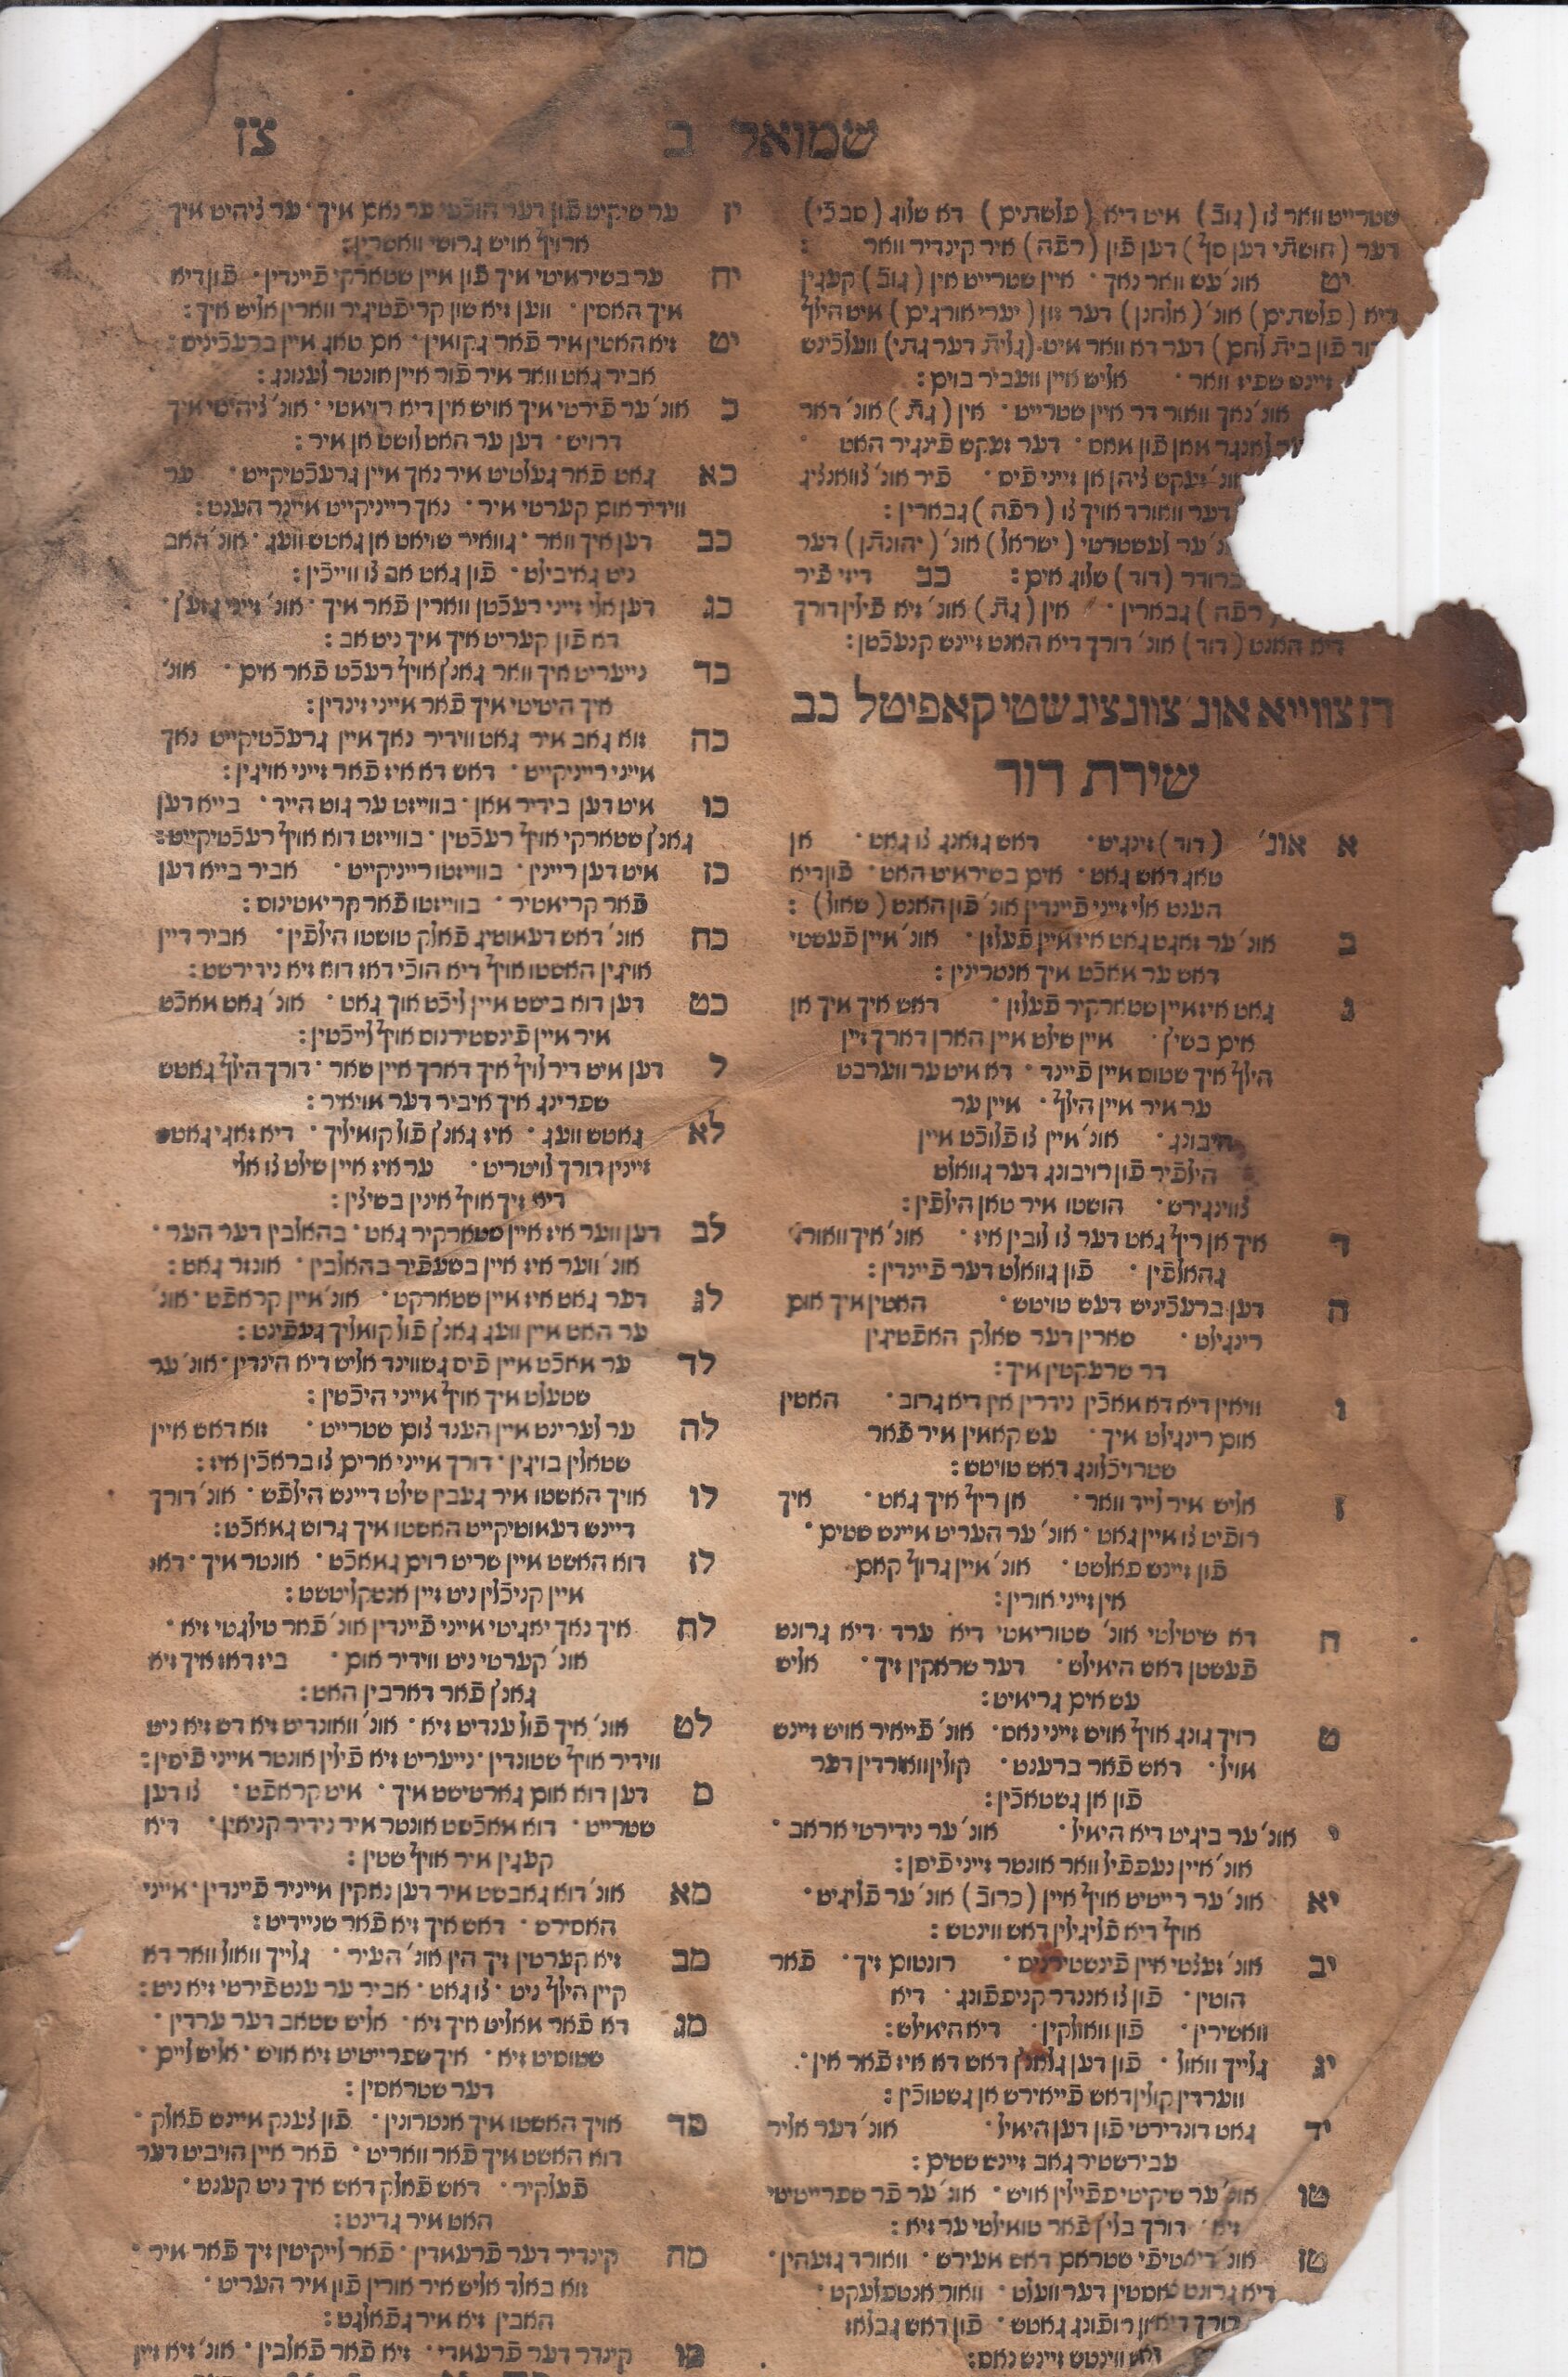 שמואל ב
צז
שטרייט וואר צו (גוב) מיט דיא (פלשתים) דא שלוג (סבכי)
דער (חושתי דען סף) דען פֿון (רפה) איר קינדיר וואר :
יט אונ׳ עש וואר נאך ׳ איין שטרייט אין (גוב) קעגין
דיא (פלשתים) אונ׳ (אלחנן) דער זון (יערי אורגים) מיט הילף
דוד פֿון בית לחם) דער דא וואר מיט (גלית דער גתי) וועלכֿינש
זיינש שפיז וואר ׳ אליש איין וועביר בוים :
אונ׳ נאך וואור דר איין שטרייט ׳ אין (גת) אונ׳ דאר
לאנגר מאן פֿון מאס ׳ דער זעקש פֿינגיר האט ׳
אונ׳ זעקש ציהן אן זייני פֿיס ׳ פֿיר אונ׳ צוואנציג
דער וואורד אויך צו (רפה) גבארין :
אונ׳ ער לעשטרטי (ישראל) אונ׳ (יהונתן) דער
ברודר (דוד) שלוג אים : כב דיזי פֿיר
(רפה) גבארין ׳ אין (גת) אונ׳ זיא פֿילין דורך
דיא האנט (דוד) אונ׳ דורך דיא האנט זיינש קנעכֿטן :
דז צווייא אונ׳ צוונציגשטי קאפיטל כב
שירת דוד
א אונ׳ (דוד) זינגיט ׳ דאש גזאנג צו גאט ׳ אן
טאג דאש גאט ׳ אים בשירמיט האט ׳ פֿון דיא
הענט אלי זייני פֿיינדין אונ׳ פֿון האנט (שאול) :
ב אונ׳ ער זאגט גאט איז מיין פֿעלזן ׳ אונ׳ מיין פֿעשטי
דאש ער מאכֿט מיך אנטרינין :
ג גאט איז מיין שטארקיר פֿעלזן ׳ דאש איך מיך אן
אים בשיץ ׳ מיין שילט מיין הארן דארך זיין
הילף איך שטוס מיין פֿיינד ׳ דא מיט ער ווערבט
ער מיר מיין הילף ׳ מיין ער
היבונג ׳ אונ׳ מיין צו פֿלוכֿט מיין
הילפֿיר פֿון רויבונג דער גוואלט
צווינגירש ׳ הושטו מיר טאן הילפֿין :
ד איך אן ריף גאט דער צו לובין איז ׳ אונ׳ איך וואורד
גהאלפֿין ׳ פֿון גוואלט דער פֿיינדין :
ה דען ברעכֿיניש דעש טויטש ׳ האטין מיך אום
רינגילט ׳ שארין דער שאלק האפֿטיגין
דר שרעקטין מיך :
ו וויאין דיא דא מאכֿין נידרין אין דיא גרוב ׳ האטין
אום רינגילט מיך ׳ עש קאמין מיר פֿאר
שטרויכֿלונג דאש טויטש :
ז אליש מיר לייד וואר ׳ אן ריף איך גאט ׳ איך
רופֿיט צו מיין גאט ׳ אונ׳ ער העריט מיינש שטים ׳
פֿון זיינש פאלשט ׳ אונ׳ מיין גרוף קאם
אין זייני אורין :
ח דא שיטילטי אונ׳ שטורמטי דיא ערד דיא גרונט
פֿעשטן דאש הימילש ׳ דער שראקין זיך ׳ אליש
עש אים גרימיט :
ט רויך גונג אויף אויש זייני נאס ׳ אונ׳ פֿייאיר אויש זיינש
מויל ׳ דאש פֿאר ברענט ׳ קולין ווארדין דער
פֿון אן גשטאכֿין :
י אונ׳ ער ביגיט דיא הימיל ׳ אונ׳ ער נידירטי אראב ׳
אונ׳ איין נעפפיל וואר אונטר זייני פֿיסן :
יא אונ׳ ער רייטיט אויף איין (כרוב) אונ׳ ער פֿליגיט ׳
אויף דיא פֿליגילין דאש ווינטש :
יב אונ׳ זעצטי איין פֿינשטירניס ׳ רונטום זיך ׳ פֿאר
הוטין ׳ פֿון צו אננדר קניפפֿונג ׳ דיא
וואשירין ׳ פֿון וואולקין ׳ דיא הימילש :
יג גלייך וואול ׳ פֿון דען גלאנץ דאש דא איז פֿאר אין ׳
ווערדין קולין דאש פֿייאירש אן גשטוכֿין :
יד גאט דונדירטי פֿון דען הימיל ׳ אונ׳ דער אליר
עבירשטיר גאב זיינש שטים :
טו אונ׳ ער שיקיטי פפֿיילין אויש ׳ אונ׳ ער פֿר שפרייטיטי
זיא ׳ דורך בליץ פֿאר טומילטי ער זיא :
טז אונ׳ דיא טיפֿי שטראם דאש מעירש ׳ וואורד גזעהין ׳
דיא גרונט פֿאסטין דער וועלט ׳ וואור אנטפלעקט ׳
דורך רופֿונג גאטש ׳ פֿון דאש גבלאז
ווינטש זיינש נאס :
יז ער שיקיט פֿון דער הוכֿטי ער נאם מיך ׳ ער ציהיט מיך
ארויף אויש גרושי וואסרין :
יח ער בשירמיטי מיך פֿון מיין שטארקי פֿיינדין ׳ פֿון דיא
מיך האסין ׳ ווען זיא שון קריפֿטיגיר ווארין אליש איך :
יט זיא האטין מיר פֿאר גקומין ׳ אם טאג מיין ברעכֿיניס :
אביר גאט וואר מיר פֿור איין אונטר לענונג :
כ אונ׳ ער פֿירטי מיך אויש אין דיא רוימטי ׳ אונ׳ ציהיטי מיך
דרויש ׳ דען ער האט לושט אן מיר :
כא גאט פֿאר געלטיט מיר נאך מיין גרעכֿטיקייט ׳ ער
ווידיר אום קערטי מיר ׳ נאך רייניקייט מיינר הענט :
כב דען איך וואר ׳ גוואיר שומט אן גאטש וועג ׳ אונ׳ האב
ניט גאיבילט ׳ פֿון גאט אב צו ווייכֿין :
כג דען אלי זייני רעכֿטן ווארין פֿאר מיך ׳ אונ׳ זייני גזעץ ׳
דא פֿון קעריט איך מיך ניט אב :
כד נייערט איך וואר גאנץ אויף רעכֿט פֿאר אים ׳ אונ׳
איך היטיטי מיך פֿאר מייני זינדין :
כה זוא גאב מיר גאט ווידיר נאך מיין גרעכֿטיקייט נאך
מייני רייניקייט ׳ דאש דא איז פֿאר זייני אויגין :
כו מיט דען בידיר מאן ׳ בווייזט ער גוט הייד ׳ בייא דען
גאנץ שטארקי אויף רעכֿטין ׳ בווייזט דוא אויף רעכֿטיקייט :
כז מיט דען ריינין ׳ בווייזטו רייניקייט ׳ אביר בייא דען
פֿאר קרימטיר ׳ בווייזטו פֿאר קרימטינוס :
כח אונ׳ דאש דעמוטיג פֿאלק טושטו הילפֿין ׳ אביר דיין
אויגין האסטו אויף דיא הוכֿי דאז דוא זיא נידירשט :
כט דען דוא בישט מיין ליכֿט אוך גאט ׳ אונ׳ גאט מאכֿט
מיר מיין פֿינסטירנוס אויף לייכֿטין :
ל דען מיט דיר לויף איך דארך איין שאר ׳ דורך הילף גאטש
שפרינג איך איביר דער מויאיר :
לא גאטש וועג ׳ איז גאנץ פֿולקומליך ׳ דיא זאגי גאטש
זיינין דורך לויטריט ׳ ער איז איין שילט צו אלי
דיא זיך אויף אינין בשיצין :
לב דען ווער איז איין שטארקיר גאט ׳ בהאלבין דער הער ׳
אונ׳ ווער איז איין בשעפֿיר בהאלבין ׳ אונזר גאט :
לג דער גאט איז מיין שטארקט ׳ אונ׳ מיין קראפֿט ׳ אונ׳
ער האט מיין וועג גאנץ פֿולקומליך געפֿינט :
לד ער מאכֿט מיין פֿיס גשווינד אליש דיא הינדין ׳ אונ׳ ער
שטעלט מיך אויף מייני היכֿטין :
לה ער לערינט מיין הענד צום שטרייט ׳ זוא דאש איין
שטאלין בויגין ׳ דורך מייני ארים צו בראכֿין איז :
לו אויך האשטו מיר געבין שילט דיינש הילפֿש ׳ אונ׳ דורך
דיינש דעמוטיקייט האשטו מיך גרוש גמאכֿט :
לז דוא האשט מיין שריט רוים גמאכֿט ׳ אונטר מיך ׳ דאז
מיין קניכֿלין ניט זיין אנטקליטשט :
לח איך נאך יאגיטי מייני פֿיינדין אונ׳ פֿאר טילגטי זיא ׳
אונ׳ קערטי ניט ווידיר אום ׳ ביז דאז איך זיא
גאנץ פֿאר דארבין האט :
לט אונ׳ איך פֿול ענדיט זיא ׳ אונ׳ וואונדיט זיא דש זיא ניט
ווידיר אויף שטונדין ׳ נייערט זיא פֿילין אונטר מייני פֿיסין :
מ דען דוא אום גארטישט מיך ׳ מיט קראפֿט ׳ צו דען
שטרייט ׳ דוא מאכֿשט אונטר מיר נידיר קניאין ׳ דיא
קעגין מיר אויף שטין :
מא אונ׳ דוא גאבשט מיר דען נאקין מייניר פֿיינדין ׳ מייני
האסירש ׳ דאש איך זיא פֿאר שניידיט :
מב זיא קערטין זיך הין אונ׳ העיר ׳ גלייך וואול וואר דא
קיין הילף ניט ׳ צו גאט ׳ אביר ער ענטפֿירטי זיא ניט :
מג דא פֿאר מאליט איך זיא ׳ אליש שטאב דער ערדין ׳
שטוסיט זיא ׳ איך שפרייטיט זיא אויש ׳ אליש ליים ׳
דער שטראסין :
מד אויך האשטו מיך אנטרונין ׳ פֿון צענק מיינש פֿאלק ׳
דוא האשט מיך פֿאר ווארט ׳ פֿאר איין הויביט דער
פֿעלקיר ׳ דאש פֿאלק דאש איך ניט קענט ׳
האט מיר גדינט :
מה קינדיר דער פֿרעמדין ׳ פֿאר לייקיטין זיך פֿאר מיר ׳
זוא באלד אליש מיר אורין פֿון מיר העריט ׳
האבין זיא מיר געפֿאלגט :
מו קינדר דער פֿרעמדי ׳ זיא פֿאר פֿאלבין ׳ אונ׳ זיא זיין